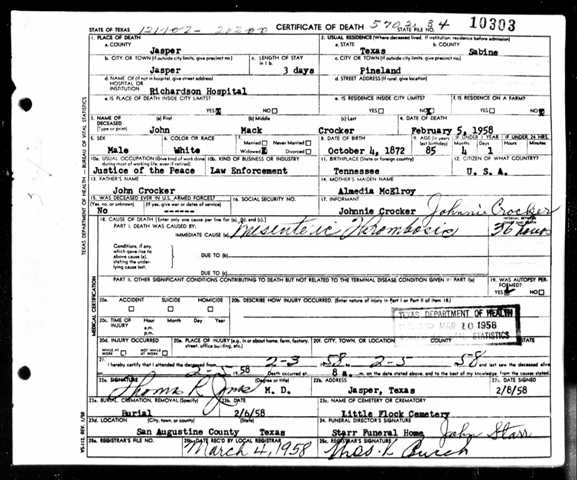 STATE OF TEXAS CERTIFICATE OF DEATH STATE FILE NO. 10303
1. PLACE OF DEATH
a. COUNTY
Jasper
2. USUAL RESIDENCE (Where deceased lived. If institution: residence before admission)
a. STATE b. COUNTY
Texas Sabine
b. CITY OR TOWN (If outside city limits, give precinct no.) c. LENGTH OF STAY in 1 b.
Jasper 3 days
c. CITY OR TOWN (If outside city limits, give precinct no.)
Pineland
d. NAME OF (If not in hospital, give street address) HOSPITAL OR INSTITUTION
Richardson Hospital
d. STREET ADDRESS (If rural, give location)
e. IS PLACE OF DEATH INSIDE CITY LIMITS? YES NO
e. IS RESIDENCE INSIDE CITY LIMITS? YES NO
f. IS RESIDENCE ON A FARM? YES NO
3. NAME OF DECEASED (Type or print) (a) First (b) Middle (c) Last
John Mack Crocker
4. DATE OF DEATH
February 5, 1958
5. SEX
Male
6. COLOR OR RACE
White
7. Married Never Married
Widowed Divorced
8. DATE OF BIRTH
October 4, 1872
9. AGE (In years last birthday) IF UNDER 1 YEAR IF UNDER 24 HRS.
85 4 1
10a. USUAL OCCUPATION (Give kind of work done during most of working life, even if retired)
Justice of the Peace
10b. KIND OF BUSINESS OR INDUSTRY
Law Enforcement
11. BIRTHPLACE (State or foreign country)
Tennessee
12. CITIZEN OF WHAT COUNTRY?
U. S. A.
13. FATHER'S NAME
John Crocker
14. MOTHER'S MAIDEN NAME
Almedia McElroy
15. WAS DECEASED EVER IN U.S. ARMED FORCES?
(Yes, no, or unknown) (If yes, give war or dates of service)
No ------
16. SOCIAL SECURITY NO.
17. INFORMANT
Johnnie Crocker Johnnie Crocker
18. CAUSE OF DEATH (Enter only one cause per line for (a), (b), and (c).)
PART I. DEATH WAS CAUSED BY:
IMMEDIATE CAUSE (a) Mesenteric Thrombosis 36 hour
Conditions, if any, which gave rise to above cause (a), stating the underlying cause last.
DUE TO (b)
DUE TO (c)
PART II. OTHER SIGNIFICANT CONDITIONS CONTRIBUTING TO DEATH BUT NOT RELATED TO THE TERMINAL DISEASE CONDITION GIVEN IN PART I(a)
19. WAS AUTOPSY PERFORMED?
YES NO
20a. ACCIDENT SUICIDE HOMICIDE
20b. DESCRIBE HOW INJURY OCCURRED. (Enter nature of injury in Part I or Part II of item 18.)
20c. TIME OF INJURY Hour Month Day Year
a.m.
p.m.
TEXAS DEPARTMENT OF HEALTH
MAR 10 1958
STATISTICS
20d. INJURY OCCURRED
WHILE AT WORK NOT WHILE AT WORK
20e. PLACE OF INJURY (e.g., in or about home, farm, factory, street, office building, etc.)
20f. CITY, TOWN, OR LOCATION COUNTY STATE
21. I hereby certify that I attended the deceased from 2-3 58, 2-5 58 and last saw the deceased alive
58 Death occurred at 8 a. m. on the date stated above, and to the best of my knowledge, from the causes stated.
22a. SIGNATURE (Degree or title)
Thomas R Jones M. D.
22b. ADDRESS
Jasper, Texas
22c. DATE SIGNED
2/6/58
23a. BURIAL, CREMATION, REMOVAL (Specify)
Burial
23b. DATE
2/6/58
23c. NAME OF CEMETERY OR CREMATORY
Little Flock Cemetery
23d. LOCATION (City, town, or county) (State)
San Augustine County Texas
24. FUNERAL DIRECTOR'S SIGNATURE
Starr Funeral Home John Starr
25a. REGISTRAR'S FILE NO.
25b. DATE REC'D BY LOCAL REGISTRAR
March 4, 1958
25c. REGISTRAR'S SIGNATURE
TEXAS DEPARTMENT OF HEALTH - BUREAU OF VITAL STATISTICS
MEDICAL CERTIFICATION